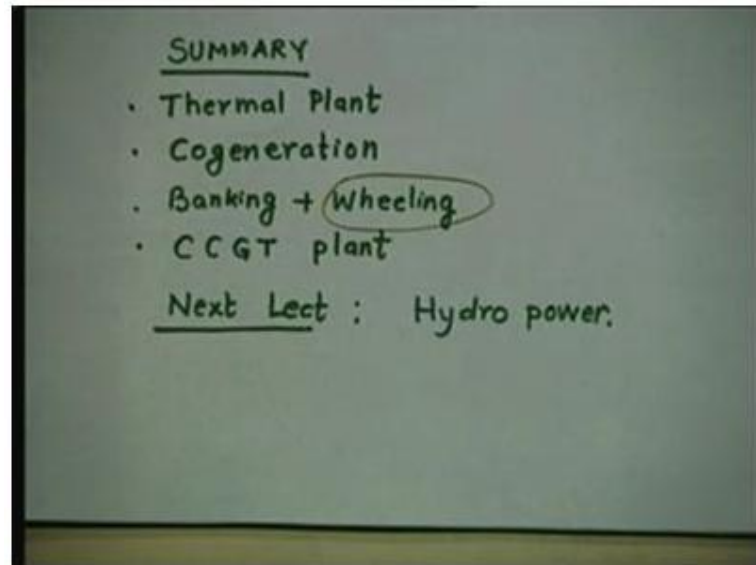 SUMMARY
· Thermal Plant
· Cogeneration
· Banking + Wheeling
· CCGT plant
Next Lect : Hydro power.